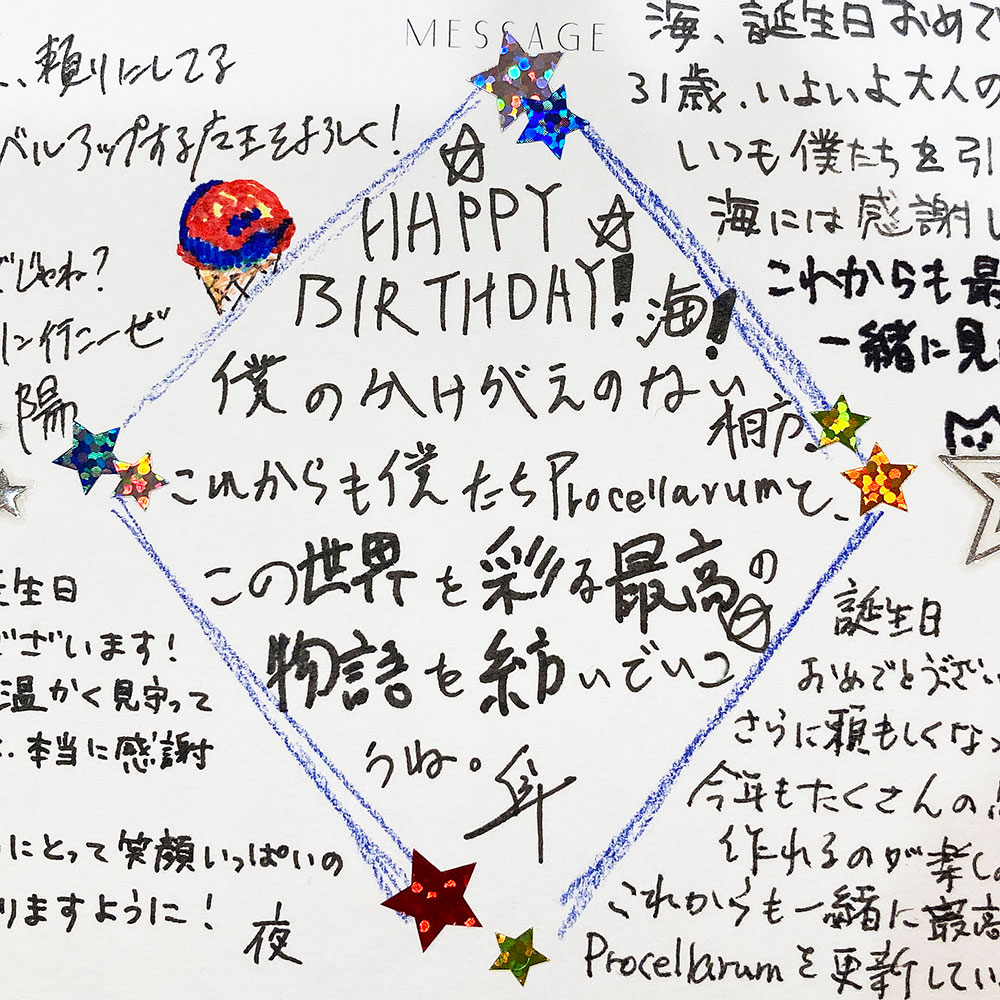 MESSAGE
頼りにしてる
ベルアップする店主をよろしく!
じゃね?
に行こーぜ
陽
海、誕生日おめで
31歳、いよいよ大人の
いつも僕たちを引
海には感謝し
これからも最
一緒に見
HAPPY
BIRTHDAY!海!
僕のかけがえのない
相方。
これからも僕たちProcellarumと、
この世界を彩る最高の
物語を紡いでいこ
うね。
生日
ございます!
温かく見守って
本当に感謝
にとって笑顔いっぱいの
りますように!
夜
誕生日
おめでとうござい
さらに頼もしくなっ
今年もたくさんの
作れるのが楽し
これからも一緒に最高
Procellarumを更新してい